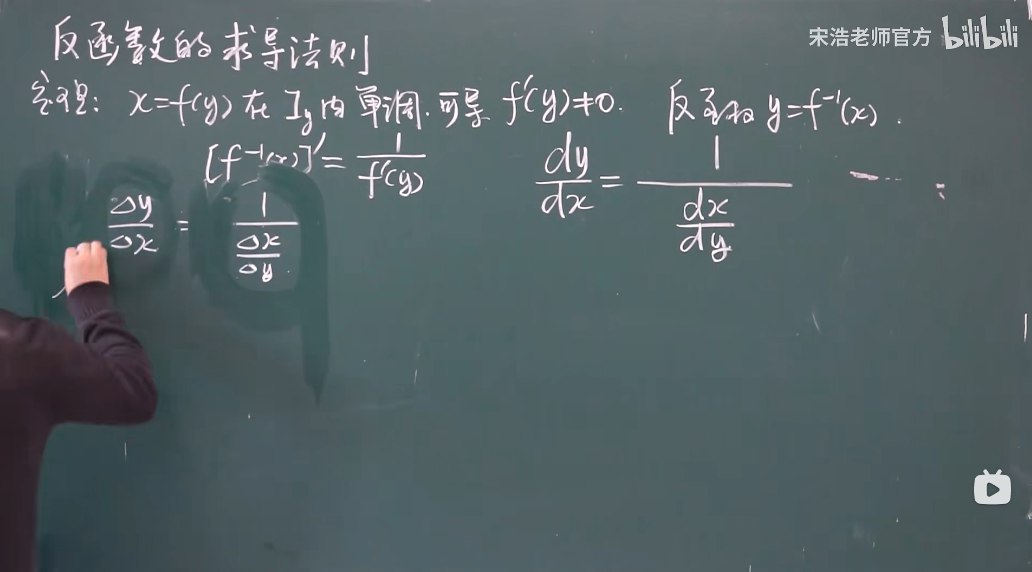 宋浩老师官方 bilibili
反函数的求导法则
定理: x=f(y) 在 I_y 内 单调.可导 f'(y)≠0. 反函数 y=f⁻¹(x).
[f⁻¹(x)]' = 1/f'(y) dy/dx = 1/(dx/dy)
Δy/Δx = 1/(Δx/Δy)